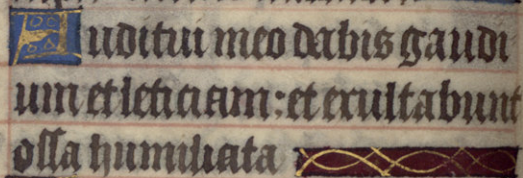 Auditui meo dabis gaudi
um et leticiam: et exultabunt
ossa humiliata